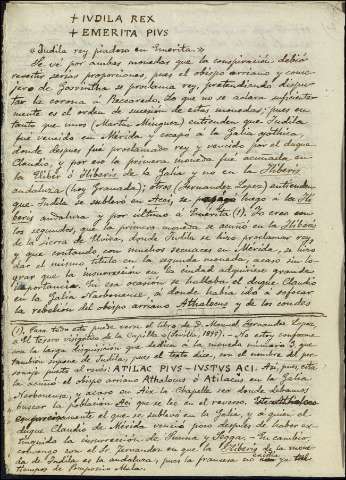 + IUDILA REX
+ EMERITA PIVS
«Iudila rey piadoso en Emerita.»
Se vé por ambas monedas que la conspiración debió
revestir serias proporciones, pues el obispo arriano y conse-
jero de Gosvintha se proclama rey, pretendiendo dispu-
tar la corona á Reccaredo. Lo que no se aclara suficiente-
mente es el orden de sucesión de estas monedas, pues en
tanto que unos (Martin Minguez) entienden que Iudila
fué vencido en Mérida y escapó á la Galia gothica,
donde despues fué proclamado rey y vencido por el duque
Claudio, y por eso la primera moneda fué acuñada en
la Iliber ó Iliberis de la Galia y no en la Iliberis
andaluza (hoy Granada); otros (Hernandez Lopez) entienden
que Iudila se sublevó en Acci, se luego á la Ili-
beris andaluza y por último á Emerita (1). Yo creo con
los segundos, que la primera moneda se acuñó en la Iliberis
de la sierra de Elvira, donde Iudila se hizo proclamar rey,
y que contando con muchos secuaces en Mérida, se hizo
dar el mismo título en la segunda moneda, acaso sin lo-
grar que la insurrección en la ciudad adquiriese grande
importancia. En esa ocasión se hallaba el duque Claudio
en la Galia Narbonense, á donde había ido á sofocar
la rebelión del obispo arriano Athalocus y de los condes
(1). Para todo esto puede verse el libro de D. Manuel Hernandez Lopez,
«El tesoro visigótico de la Capilla» (Sevilla 1895). No estoy conforme
con la larga disquisición que dedica á la moneda número 3 que
tambien supone de Iudila, pues el texto dice, con el nombre del per-
sonaje puesto al revés: ATILAC PIVS – IVSTVS ACI. Así pues, esta
la acuñó el obispo arriano Athalocus ó Atilacus en la Galia
Narbonense, y acaso en Aix la Chapelle, con donde debamos
buscar la palabra Aci que se lee en el reverso.
el que se sublevó en la Galia, y á quien el
duque Claudio de Mérida venció poco despues de haber ex-
tinguido la insurrección de Sunna y Segga. En cambio
convengo con el Sr. Fernandez en que la Iliberis de la mone-
da de Iudila es la andaluza, pues la francesa no existía ya en
tiempos de Pomponio Mela.